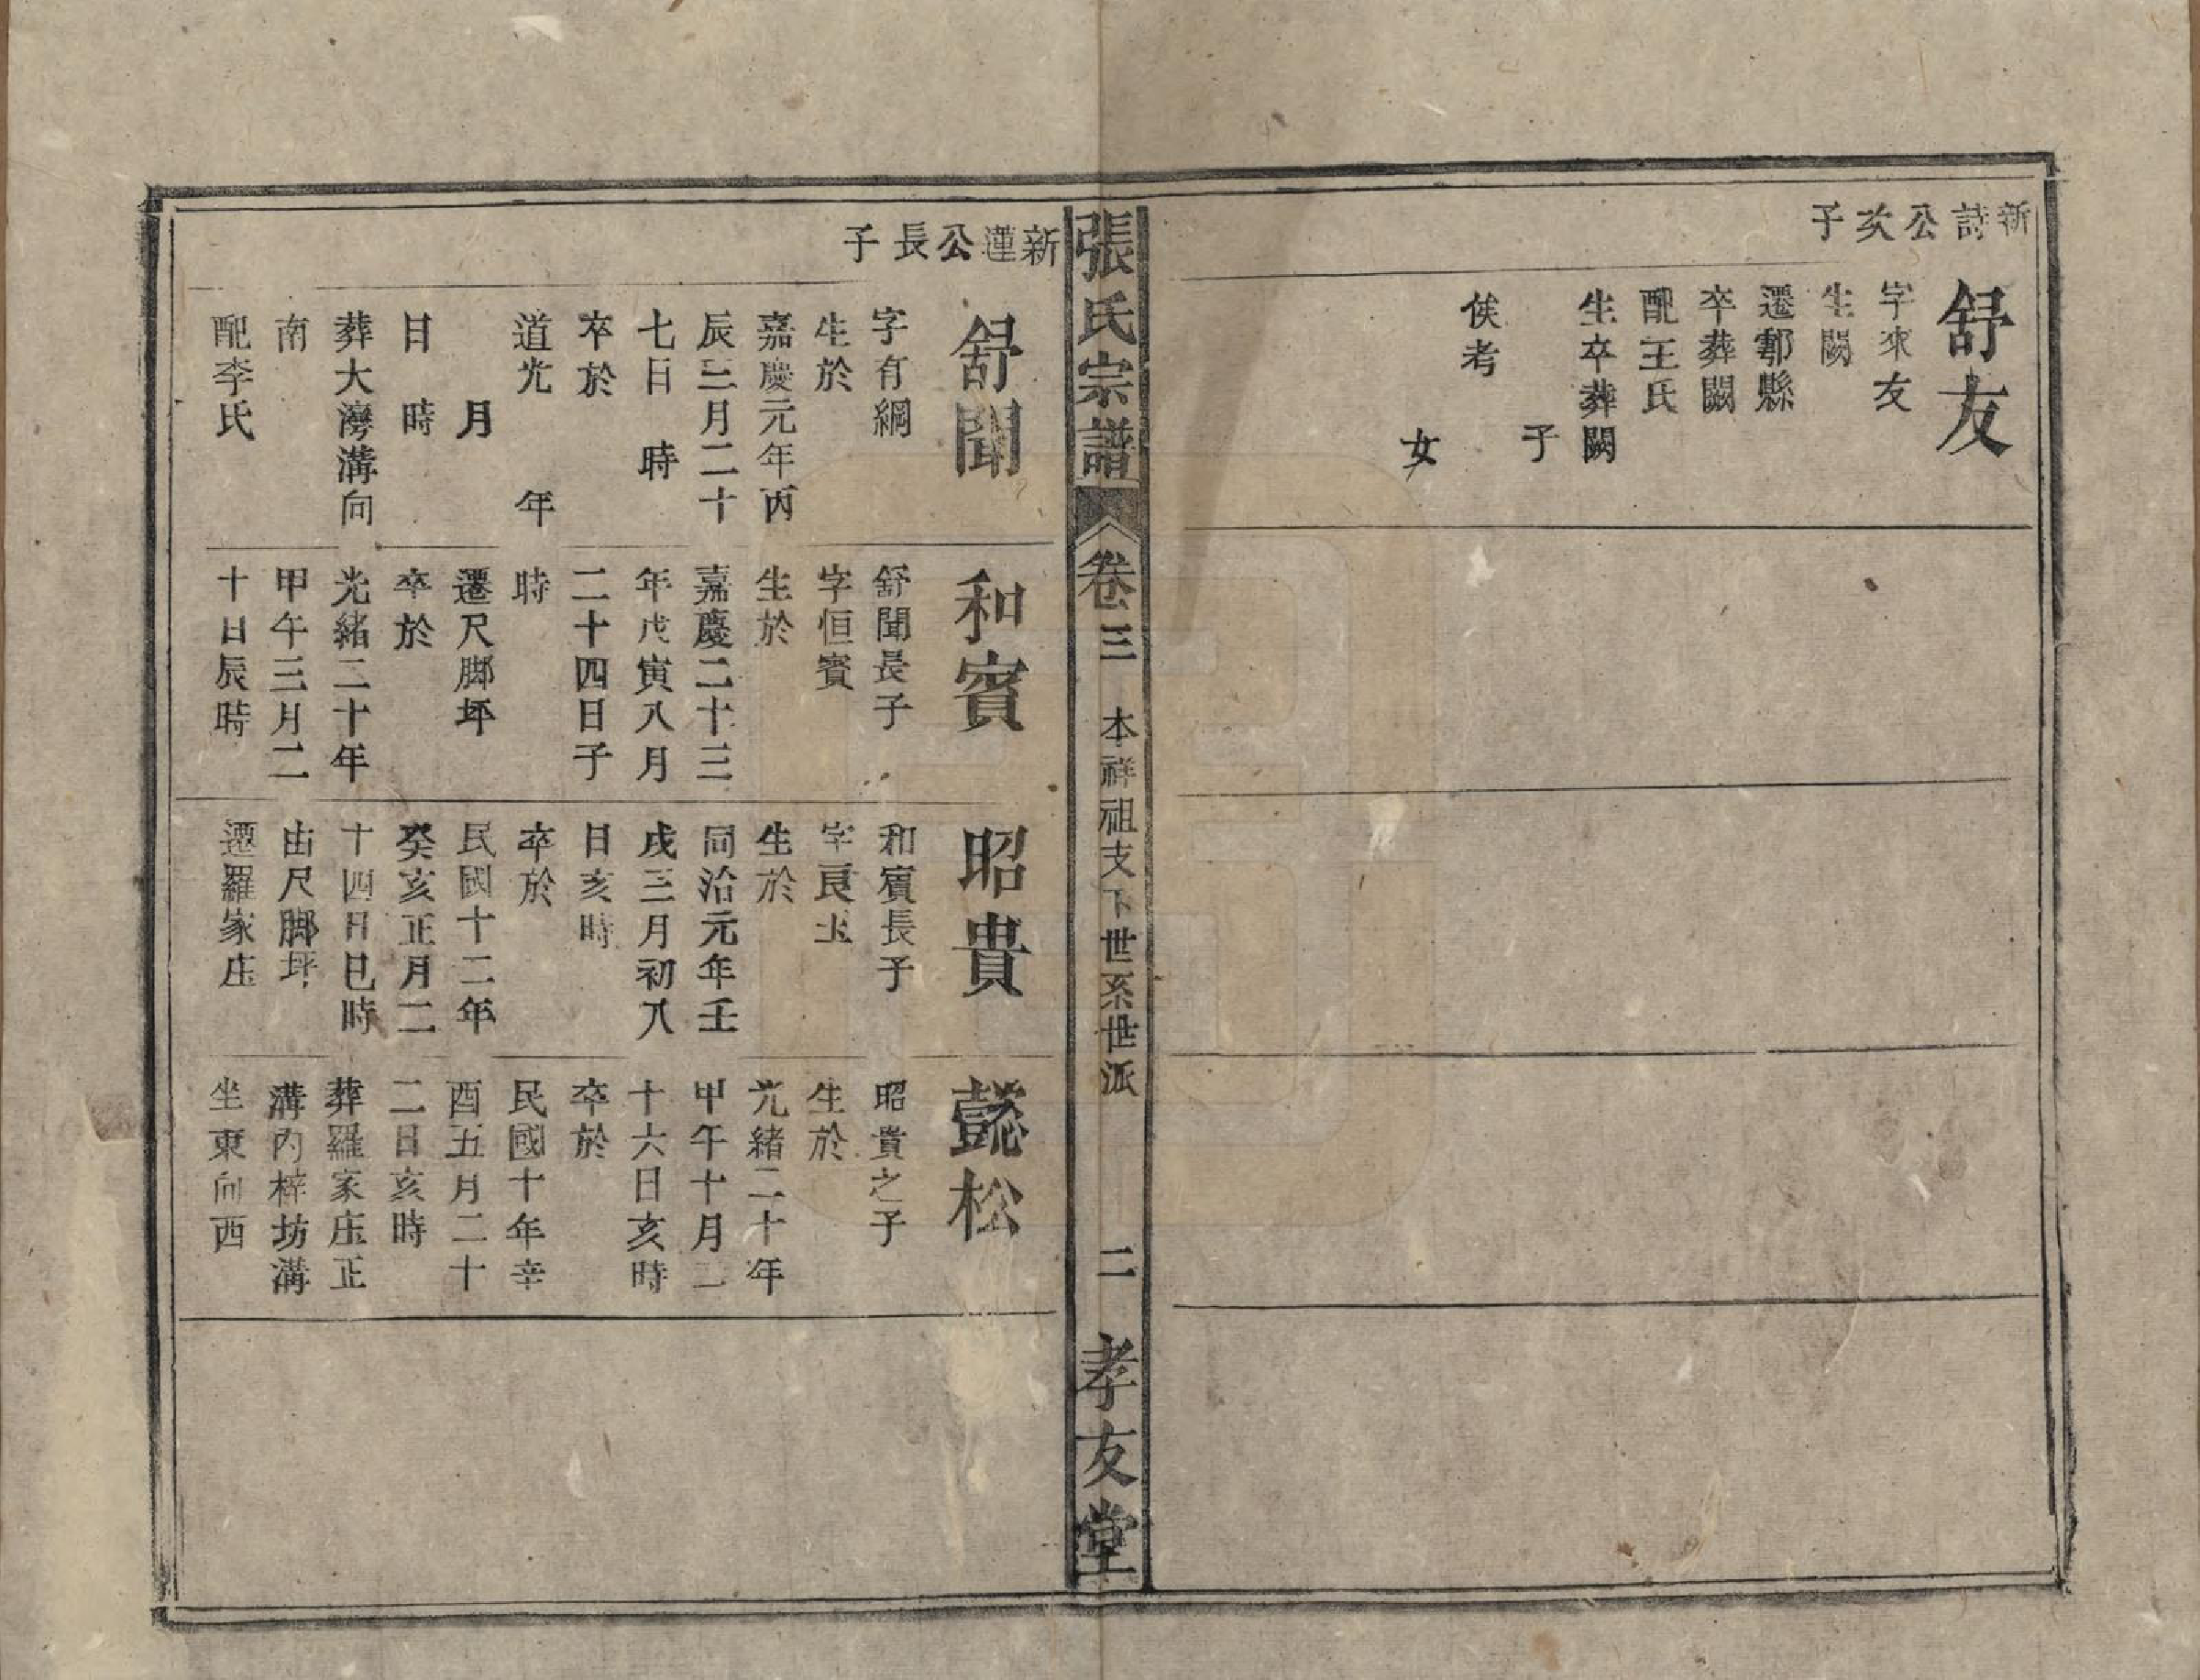 新詩公次子
舒友
字來友
生闕
遷鄠縣
卒葬闕
配王氏
生卒葬闕
子
俟考
女
張氏宗譜
卷三
本祥祖支下世系世派
二
孝友堂
新蓮公長子
舒聞
字有綱
生於
嘉慶元年丙
辰三月二十
七日 時
卒於
道光 年
月
日 時
葬大灣溝向
南
配李氏
和賓
舒聞長子
字恒賓
生於
嘉慶二十三
年戊寅八月
二十四日子
時
遷尺脚坪
卒於
光緒二十年
甲午三月二
十日辰時
昭貴
和賓長子
字良玉
生於
同治元年壬
戌三月初八
日亥時
卒於
民國十二年
癸亥正月二
十四日巳時
由尺脚坪
遷羅家庄
懿松
昭貴之子
生於
光緒二十年
甲午十月二
十六日亥時
卒於
民國十年辛
酉五月二十
二日亥時
葬羅家庄正
溝內梓坊溝
坐東向西